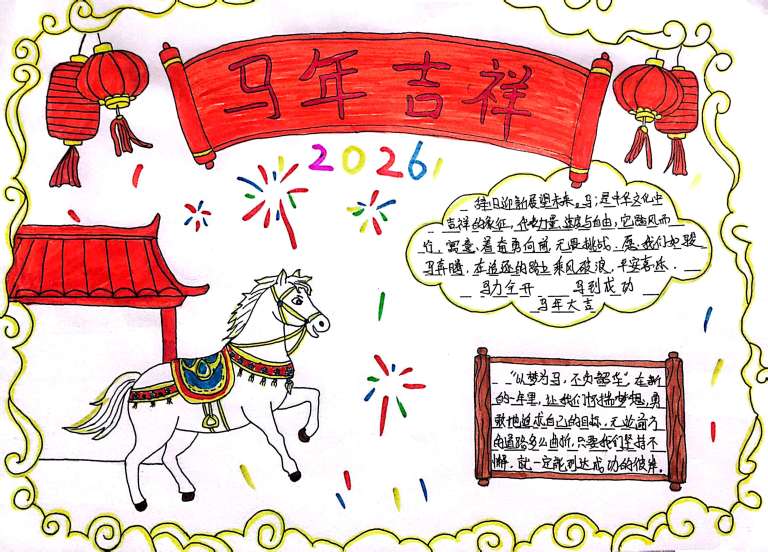 马年吉祥
2026
辞旧迎新展望未来。马,是中华文化中
吉祥的象征,代表力量、速度与自由,它踏风而
行,寓意着奋勇向前,无畏挑战。愿我们如骏
马奔腾,在追逐的路上乘风破浪,平安喜乐.
马力全开 马到成功
马年大吉
“以梦为马,不负韶华”,在新
的一年里,让我们怀揣梦想,勇
敢地追求自己的目标,无论前方
的道路多么曲折,只要我们坚持不
懈,就一定能到达成功的彼岸.